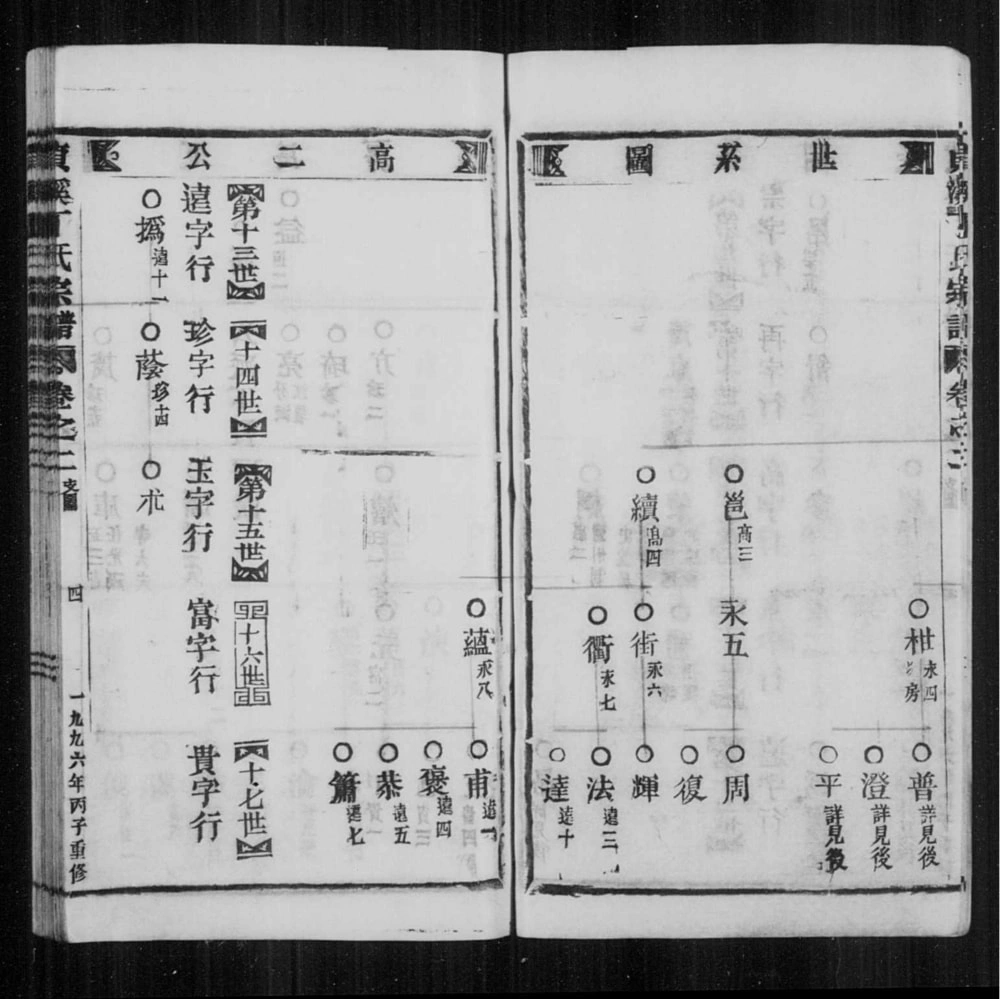 世系圖
普 詳見後
澄 詳見後
平 詳見後
柑 永四 房
周
永五
邕 高三
復
輝
街 永六
續 高四
法 遠三
衢 永七
達 遠十
高二公
甫 遠一
蘊 永八
褒 遠四
恭 遠五
簫 遠七
第十三世
十四世
第十五世
十六世
十七世
遠字行
珍字行
玉字行
富字行
貴字行
撝 遠十一
蔭 珍十四
朮
氏宗譜
卷之二
支圖
四
一九九六年丙子重修